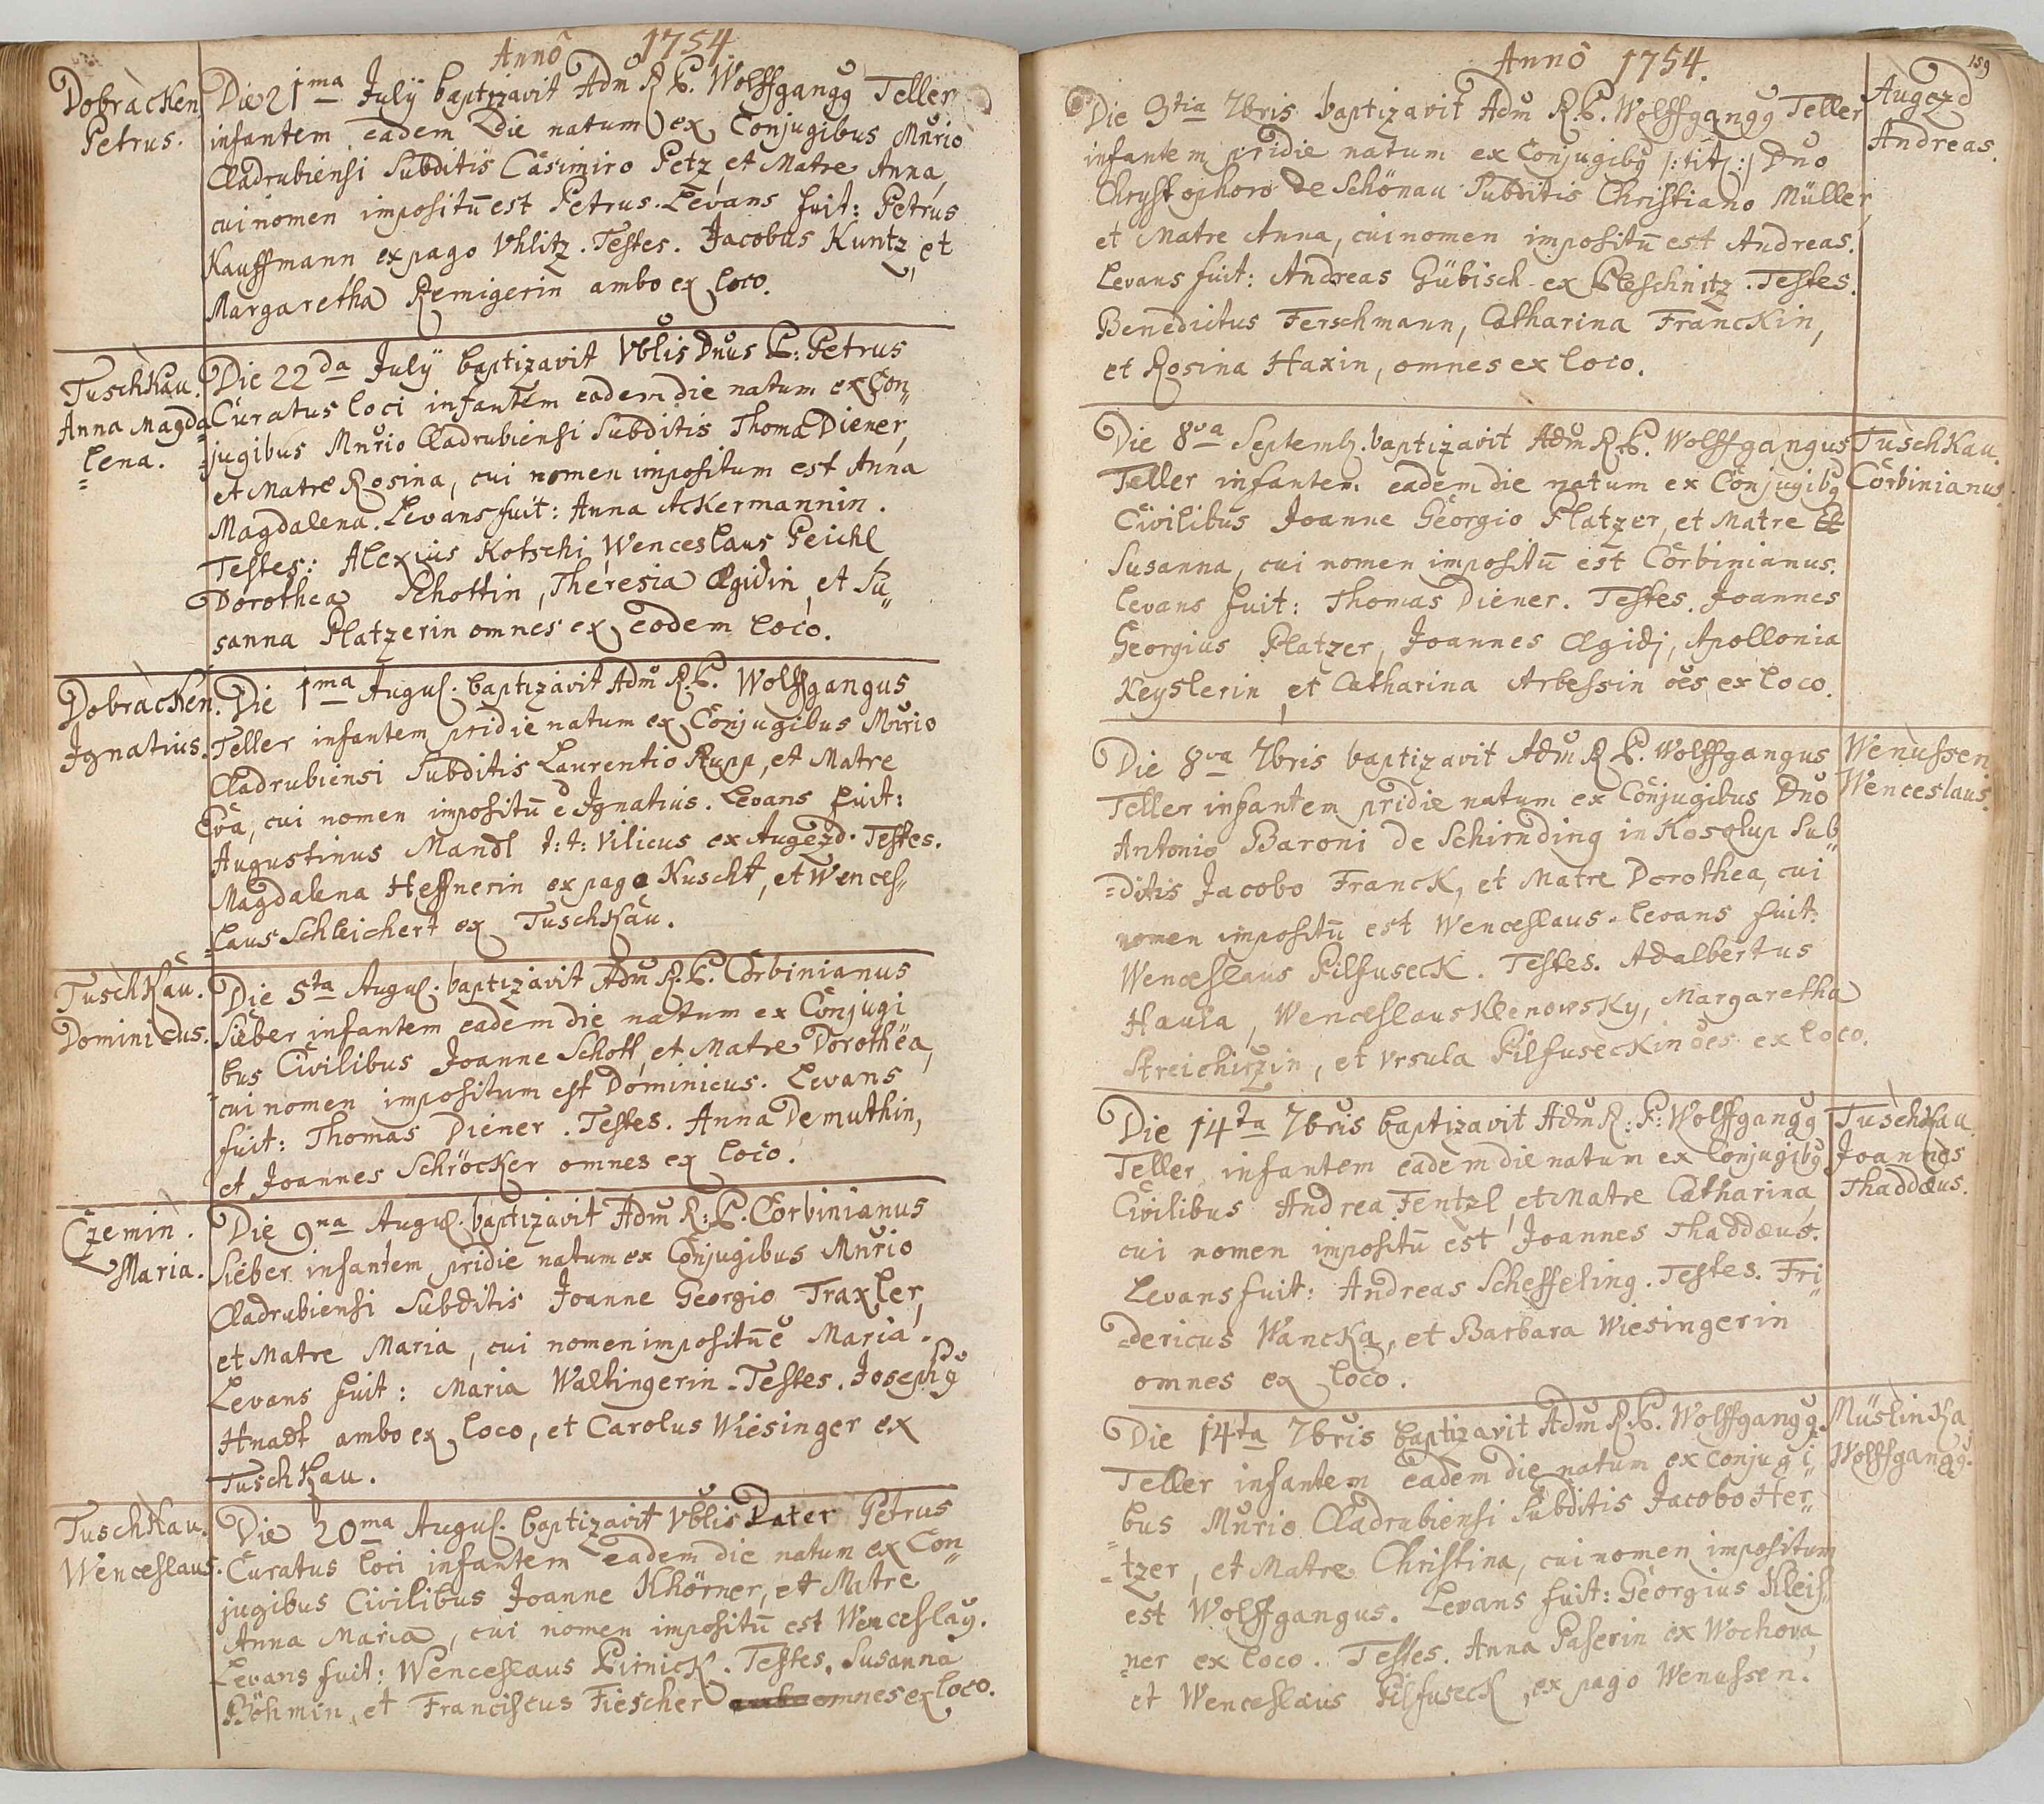 Anno 1754.
Dobracken
Petrus.
Die 21ma July baptizavit Adm R. P. Wolffgangg Teller
infantem eadem die natum ex Conjugibus Mnrio
Cladrubiensi Subditis Casimiro Petz, et Matre Anna,
cui nomen impositū est Petrus. Levans fuit: Petrus
Kauffmann ex pago Vhlitz. Testes. Jacobus Kuntz, et
Margaretha Remigerin ambo ex loco.
Tuschkau.
Anna Magda
lena.
Die 22da July baptizavit Vblis Dnus P: Petrus
Curatus loci infantem eadem die natum ex Con„
jugibus Mnrio Cladrubiensi Subditis Thoma Diener,
et Matre Rosina, cui nomen impositum est Anna
Magdalena. Levans fuit: Anna Ackermannin.
Testes: Alexius Kotschi, Wenceslaus Peichl,
Dorothea Schottin, Theresia Ægidin, et Su„
sanna Platzerin omnes ex eodem loco.
Dobracken.
Ignatius.
Die 1ma Augus. baptizavit Adm R. P. Wolffgangus
Teller infantem pridie natum ex Conjugibus Mnrio
Cladrubiensi Subditis Laurentio Rupp, et Matre
Eva, cui nomen impositū e Ignatius. Levans fuit:
Augustinus Mandl t: t: Vilicus ex Augezd. Testes.
Magdalena Heffnerin ex pago Kuscht, et Wences=
=laus Schleichert ex Tuschkau.
Tuschkau.
Dominicus.
Die 5ta Augus. baptizavit Adm R. P. Corbinianus
Sieber infantem eadem die natum ex Conjugi
bus Civilibus Joanne Schott, et Matre Dorothea,
cui nomen impositum est Dominicus. Levans
fuit: Thomas Diener. Testes. Anna Demuthin,
et Joannes Schröcker omnes ex loco.
Czemin.
Maria.
Die 9na Augus. baptizavit Adm R: P. Corbinianus
Sieber infantem pridie natum ex Conjugibus Mnrio
Cladrubiensi Subditis Joanne Georgio Traxler,
et Matre Maria, cui nomen impositū e Maria.
Levans fuit: Maria Waltingerin. Testes. Josephg
Hnadt ambo ex loco, et Carolus Wiesinger ex
Tuschkau.
Tuschkau.
Wenceslaus.
Die 20ma Augus. baptizavit Vblis Pater Petrus
Curatus loci infantem eadem die natum ex Con„
jugibus Civilibus Joanne Khörner, et Matre
Anna Maria, cui nomen impositū est Wenceslaug.
Levans fuit: Wenceslaus Pirnick. Testes. Susanna
Böhmin, et Franciscus Fiescher omnes ex loco.
Anno 1754.
159
Augezd
Andreas.
Die 3tia 7bris baptizavit Adm R. P. Wolffgangg Teller
infantem pridie natum ex Conjugibg /: tit: / Dno
Chrystophoro de Schönau Subditis Christiano Müller,
et Matre Anna, cui nomen impositū est Andreas.
Levans fuit: Andreas Gübisch ex Pleschnitz. Testes.
Benedictus Ferschmann, Catharina Franckin,
et Rosina Haxin, omnes ex loco.
Tuschkau.
Corbinianus.
Die 8va Septemb. baptizavit Adm R. P. Wolffgangus
Teller infantem eadem die natum ex Conjugibg
Civilibus Joanne Georgio Platzer, et Matre
Susanna, cui nomen impositū est Corbinianus.
Levans fuit: Thomas Diener. Testes. Joannes
Georgius Platzer, Joannes Ægidj, Apollonia
Keyslerin, et Catharina Arbessin oēs ex loco.
Wenussen
Wenceslaus.
Die 8va 7bris baptizavit Adm R P. Wolffgangus
Teller infantem pridie natum ex Conjugibus Dno
Antonio Baroni de Schirnding in Kosolup Sub„
=ditis Jacobo Franck, et Matre Dorothea, cui
nomen impositū est Wenceslaus. Levans fuit:
Wenceslaus Pilfuseck. Testes. Adalbertus
Haula, Wenceslaus Klenowsky, Margaretha
Streichirzin, et Vrsula Pilfuseckin oēs ex loco.
Tuschkau.
Joannes
Thaddæus.
Die 14ta 7bris baptizavit Adm R: P: Wolffgangg
Teller infantem eadem die natum ex Conjugibg
Civilibus Andrea Fentzl, et Matre Catharina,
cui nomen impositū est Joannes Thaddæus.
Levans fuit: Andreas Scheffeling. Testes. Fri„
=dericus Wancka, et Barbara Wiesingerin
omnes ex loco.
Müslinka
Wolffgangg.
Die 14ta 7bris baptizavit Adm R. P. Wolffgangg
Teller infantem eadem die natum ex Conjugi„
bus Mnrio Cladrubiensi Subditis Jacobo Her„
=tzer, et Matre Christina, cui nomen impositum
est Wolffgangus. Levans fuit: Georgius Kleis„
=ner ex loco. Testes. Anna Paserin ex Wochova,
et Wenceslaus Pilfuseck, ex pago Wenussen.